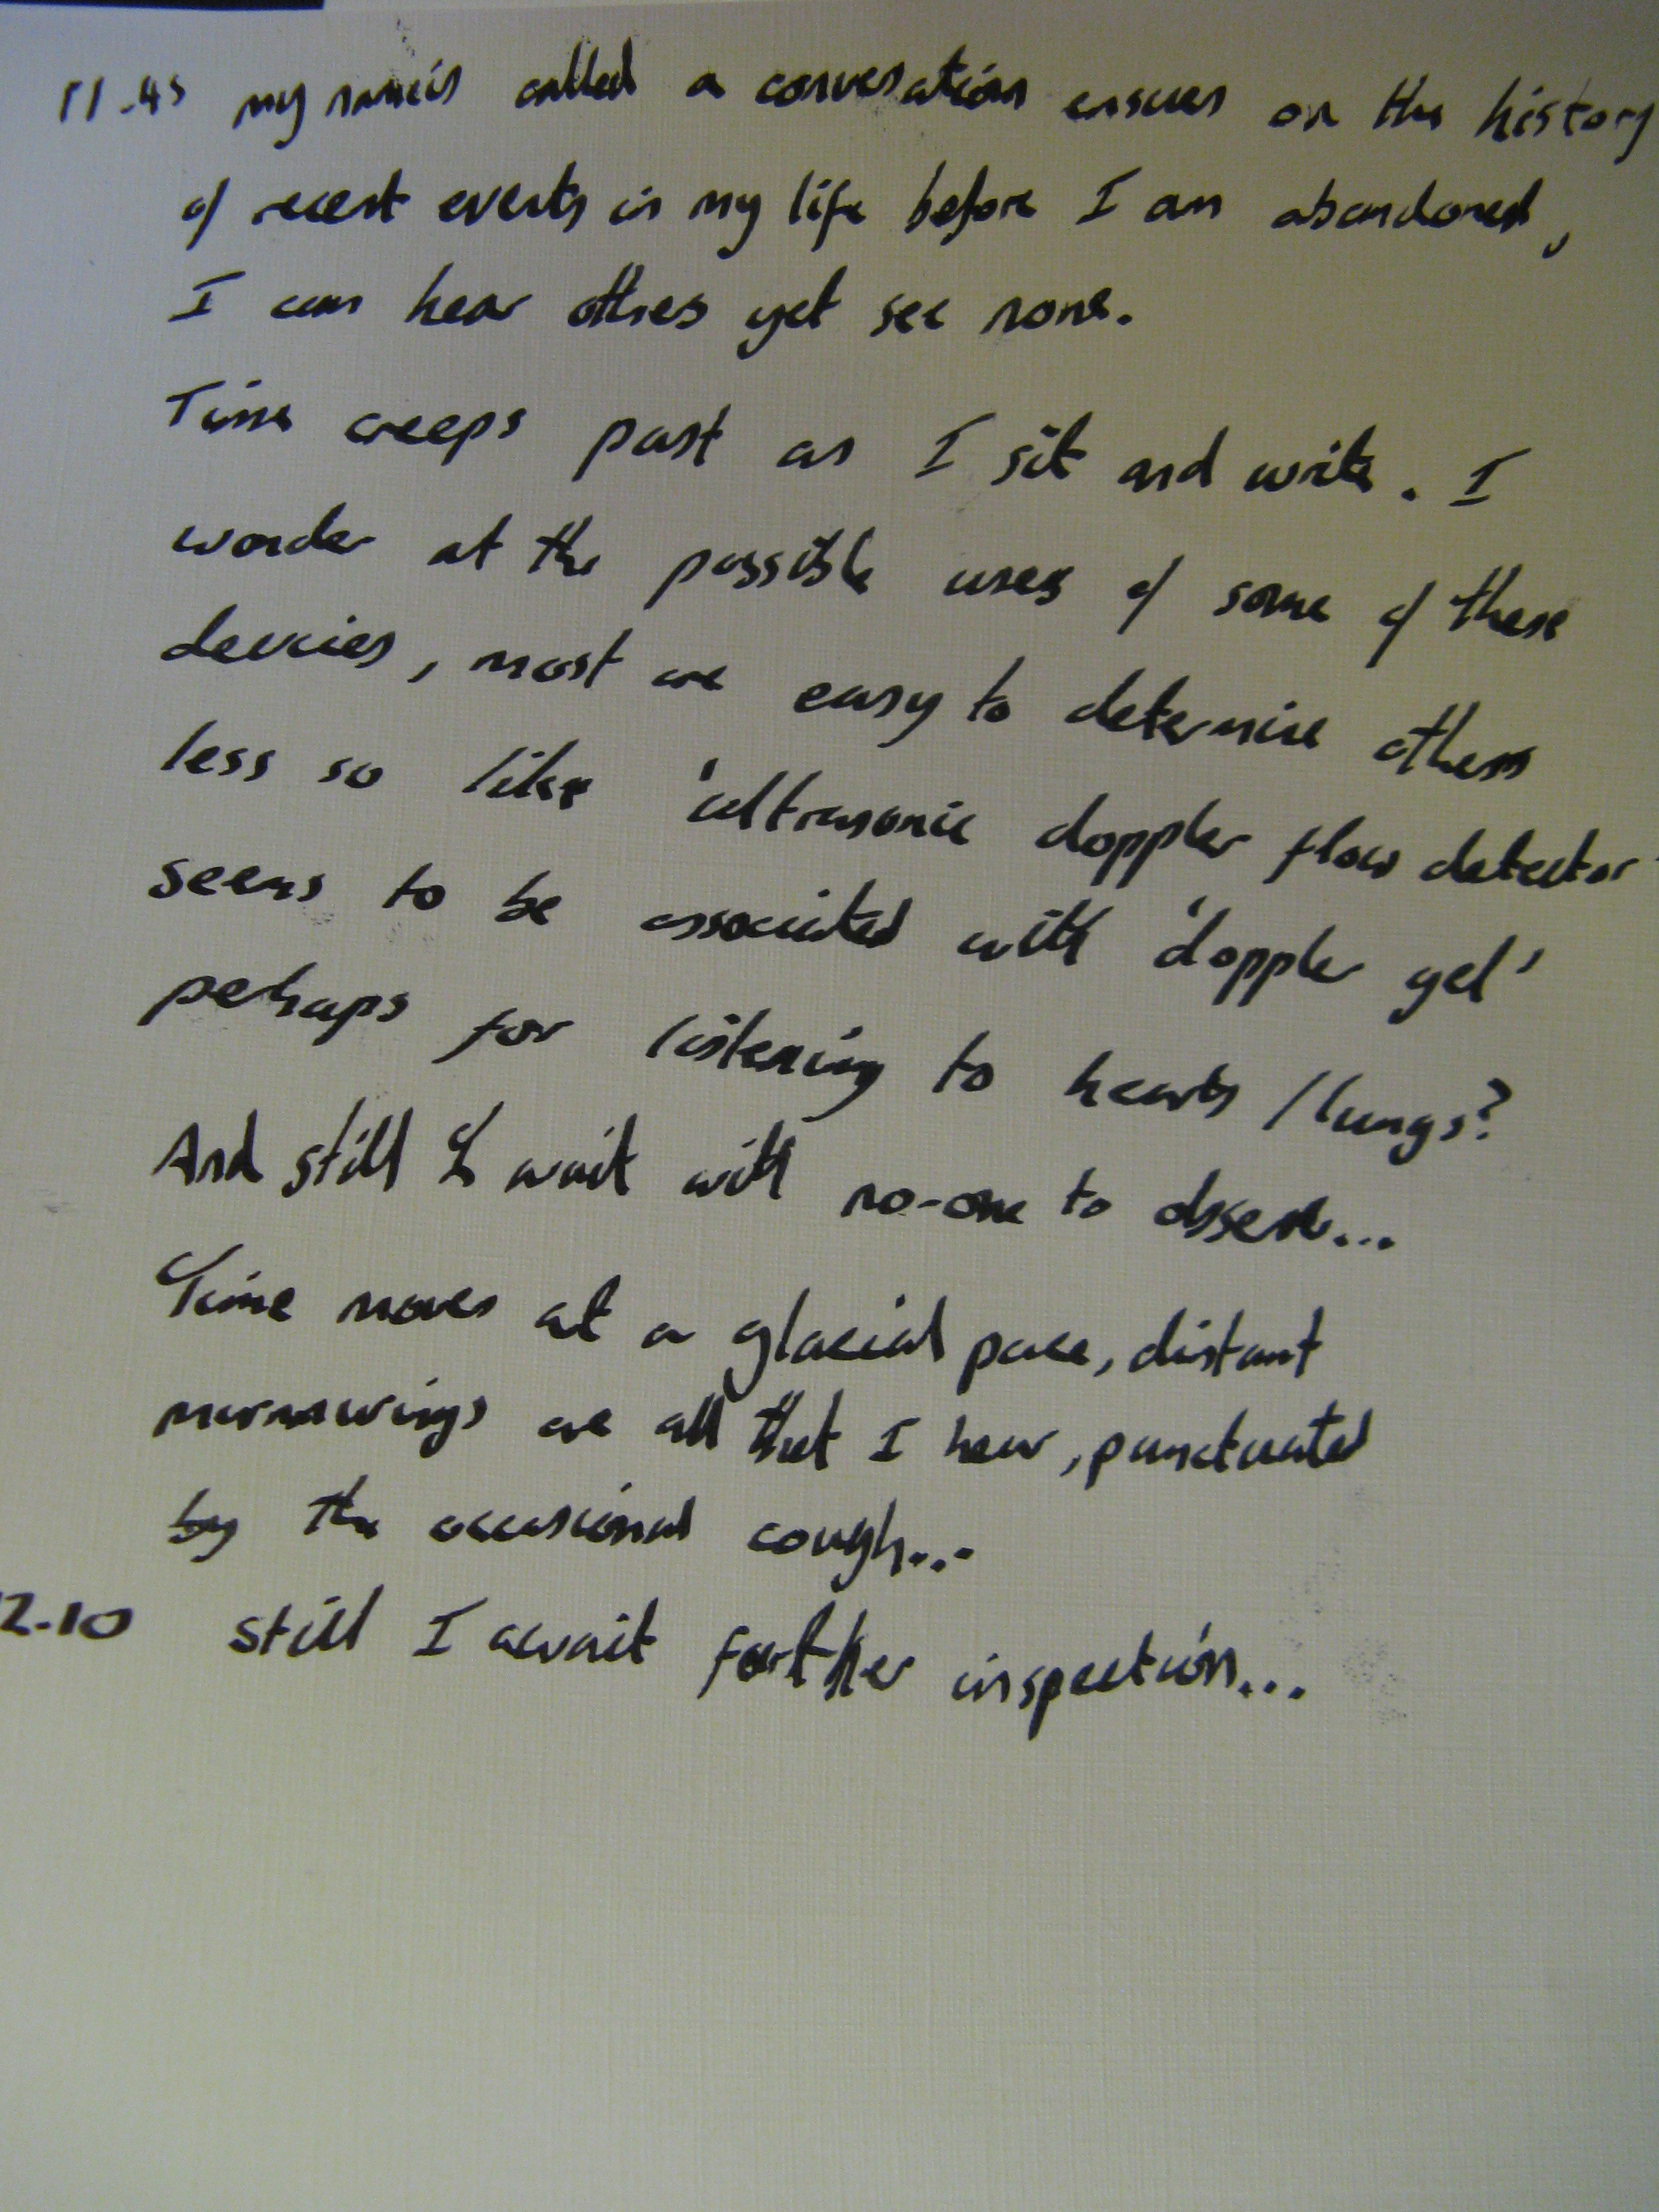 11.45 my name is called a conversation ensues on the history
of recent events in my life before I am abandoned,
I can hear others yet see none.
Time creeps past as I sit and write. I
wonder at the possible uses of some of these
devices, most are easy to determine others
less so like 'ultrasonic doppler flow detector'
seems to be associated with 'doppler gel'
perhaps for listening to hearts / lungs?
And still I wait with no-one to observe...
Time moves at a glacial pace, distant
murmurings are all that I hear, punctuated
by the occasional cough...
12.10 still I await further inspection...